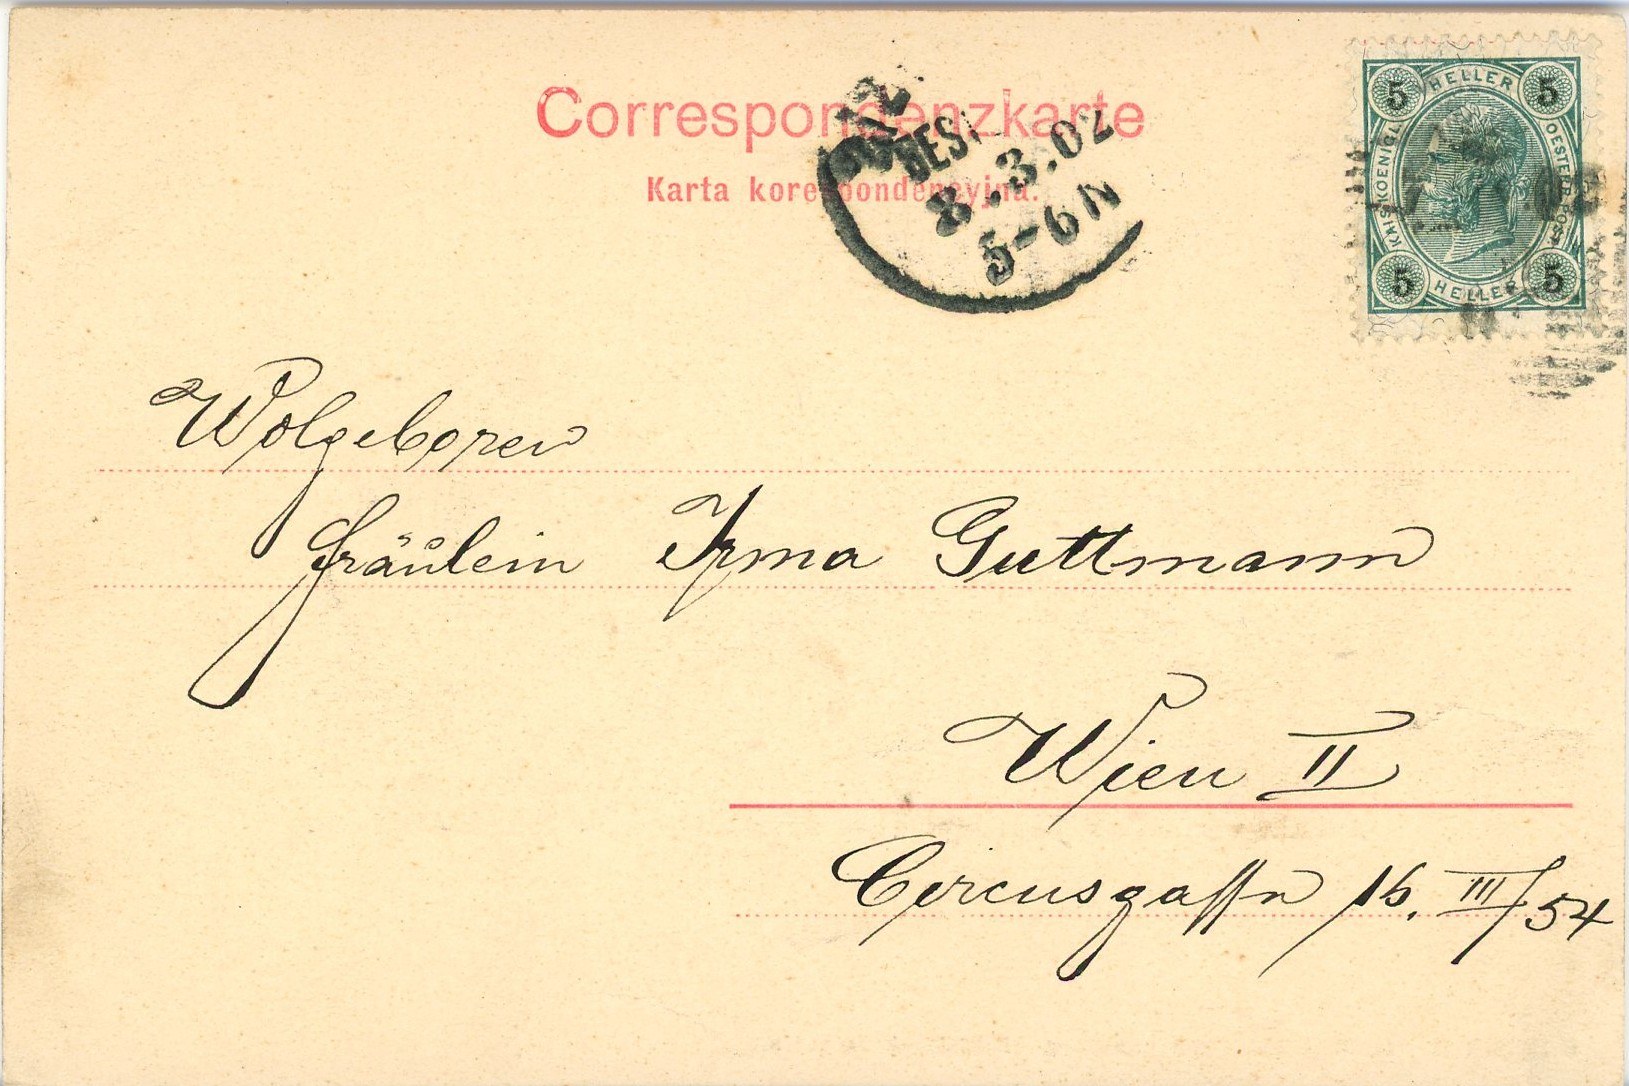 Correspondenzkarte
Karta korespondencyjna.
BES
8.3.02
5-6N
5 HELLER 5
KAIS. KOENIGL. OESTERR. POST
5 HELLER 5
Wolgeboren
Fräulein Irma Guttmann
Wien II
Circusgasse 16. III/54